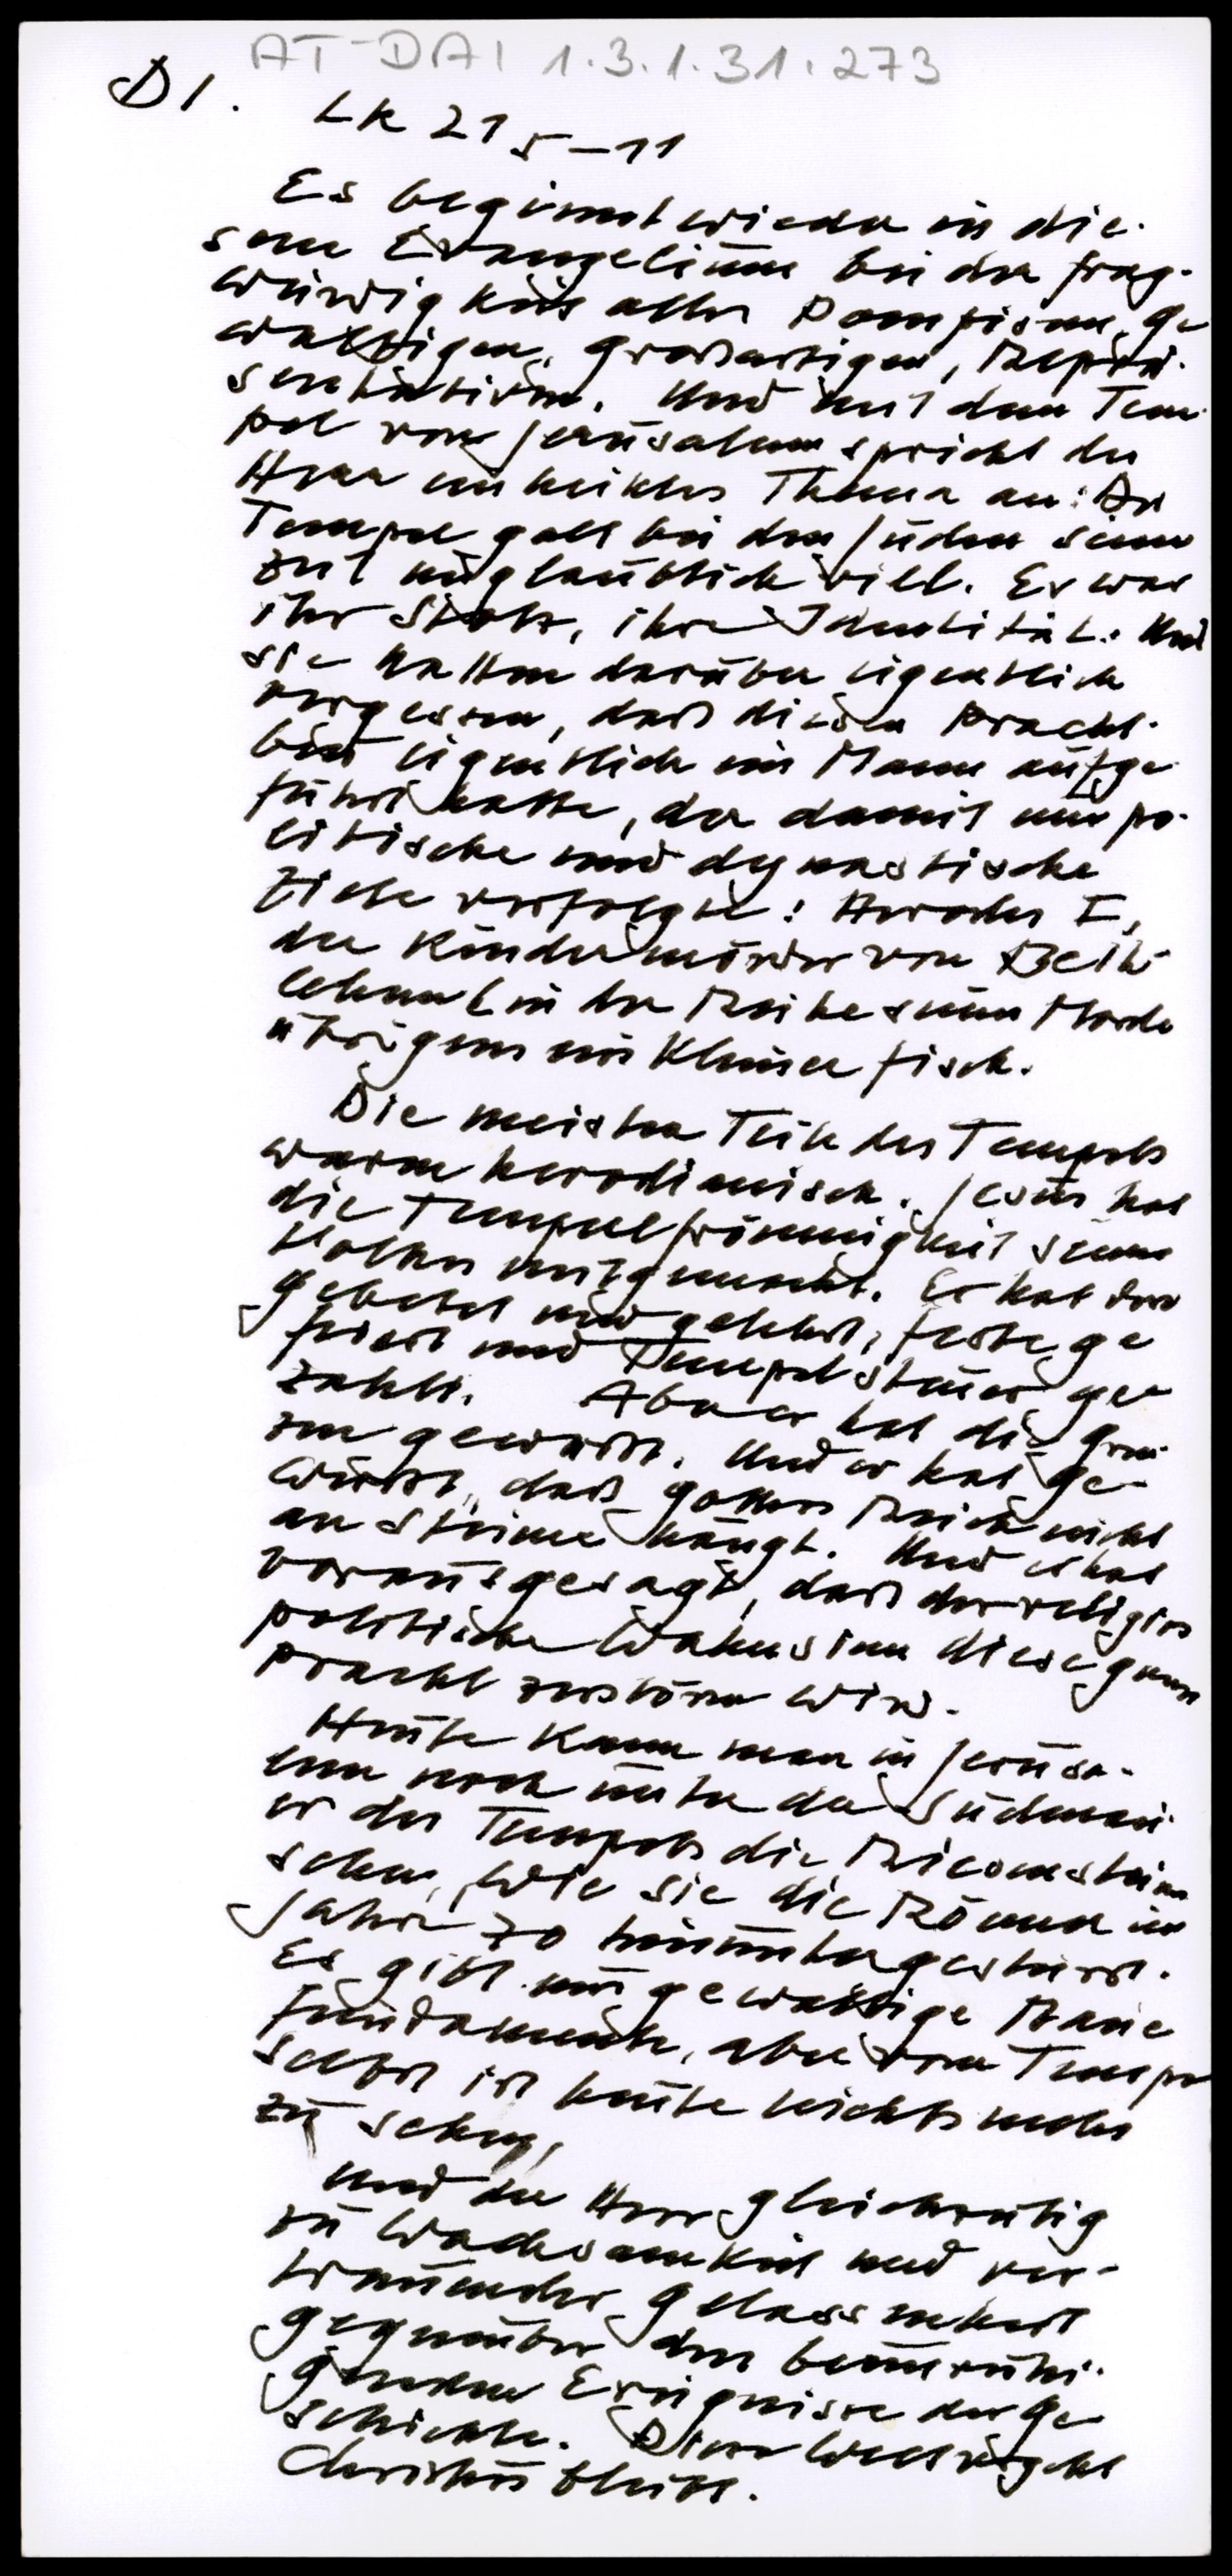 AT-DAI 1.3.1.31.273
DI. Lk 21 5-11
Es beginnt wieder in die-
sem Evangelium bei der Frag-
würdigkeit alles Pompösen, ge
waltigen, großartigen, Reprä-
sentativen. Und mit dem Tem-
pel von Jerusalem spricht der
Herr ein heikles Thema an: Der
Tempel galt bei den Juden seiner
zeit unglaublich viel. Er war
ihr Stolz, ihre Identität. Und
sie hatten darüber eigentlich
vergessen, daß diesen Pracht-
bau eigentlich ein Mann aufge
führt hatte, der damit nur po-
litische und dynastische
Ziele verfolgte: Herodes I,
der Kindermörder von Beth-
lehem in der Reihe seiner Morde
übrigens ein kleiner Fisch.
Die meisten Teile des Tempels
waren herodianisch. Jesus hat
die Tempelfrömmigkeit seines
Volkes mitgemacht. Er hat dort
gebetet und gelehrt, Feste ge
feiert und Tempelsteuer ge
zahlt. Aber er hat die Gren-
zen gewußt. Und er hat ge-
wußt, daß Gottes Reich nicht
an Steinen hängt. Und er hat
vorausgesagt, daß der religiös
politische Wahnsinn diese ganze
Pracht zerstören wird.
Heute kann man in Jerusa-
lem noch unter der Südmau-
er des Tempels die Riesensteine
sehen, wie sie die Römer im
Jahre 70 hinuntergestürzt.
Es gibt nur gewaltige Mauer
fundamente, aber vom Tempel
selbst ist heute nichts mehr
zu sehen,
und der Herr gleichzeitig
zu Wachsamkeit und ver-
trauender Gelassenheit
gegenüber den beunruhi-
genden Ereignissen der Ge
schichte. Diese Welt vergeht
Christus bleibt.